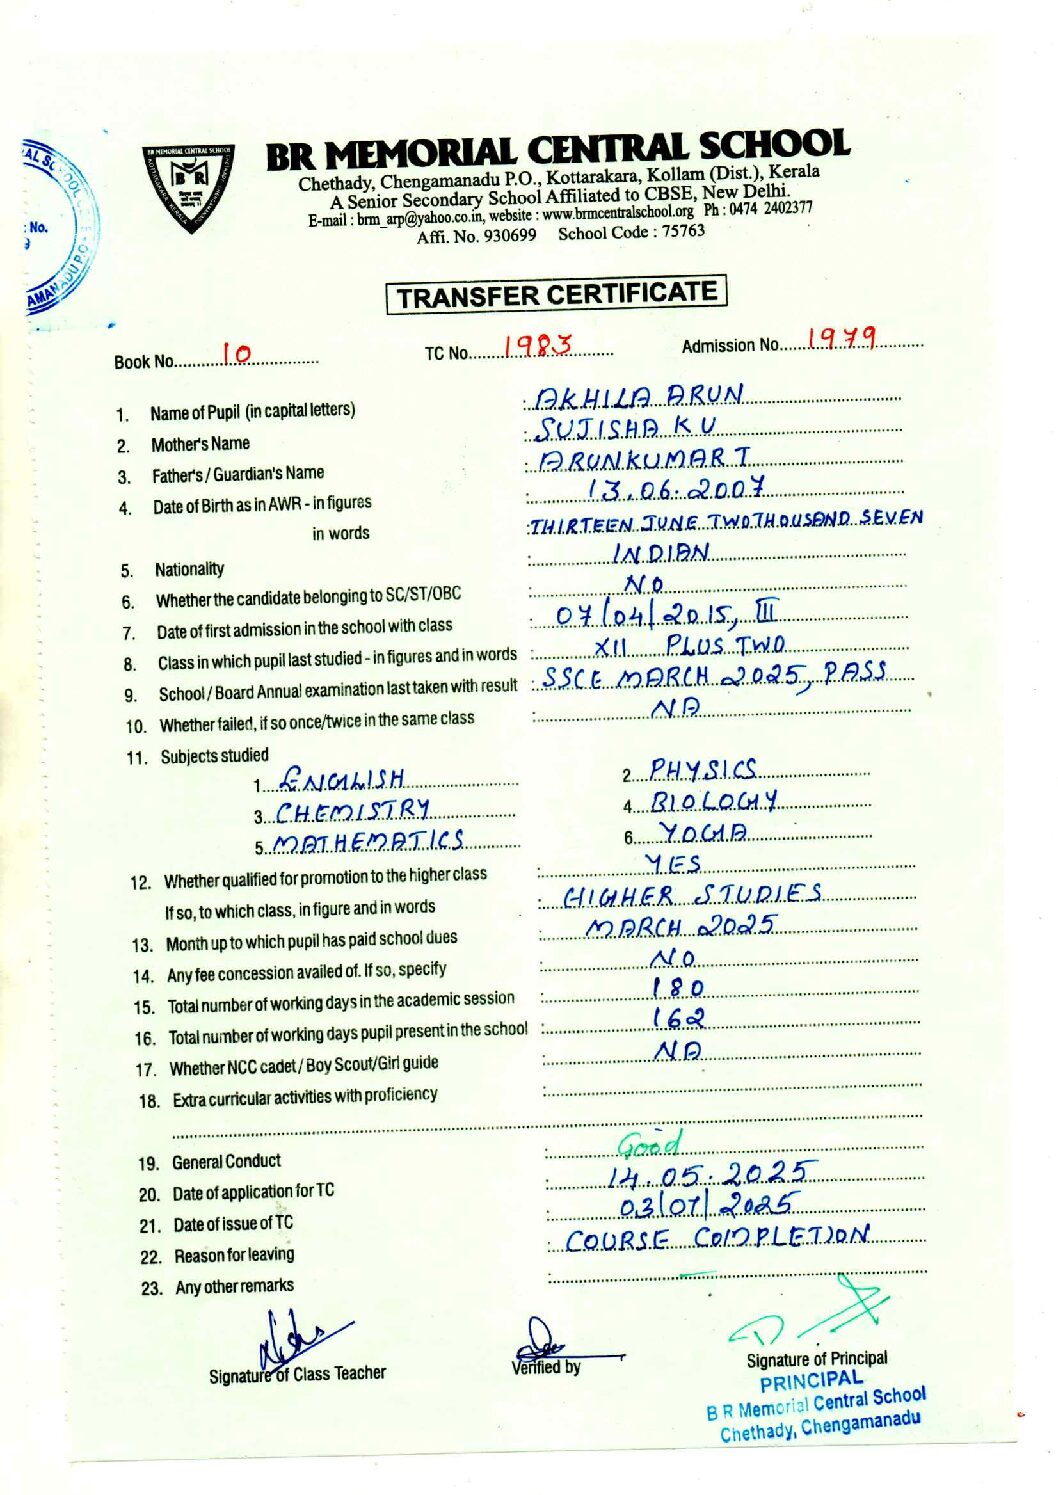 BR MEMORIAL CENTRAL SCHOOL
BR MEMORIAL CENTRAL SCHOOL
B R
Chethady, Chengamanadu P.O., Kottarakara, Kollam (Dist.), Kerala
A Senior Secondary School Affiliated to CBSE, New Delhi.
E-mail : brm_arp@yahoo.co.in, website : www.brmcentralschool.org Ph : 0474 2402377
Affi. No. 930699 School Code : 75763
: No.
TRANSFER CERTIFICATE
Book No. 10 TC No. 1983 Admission No. 1979
1. Name of Pupil (in capital letters) : AKHILA ARUN
2. Mother's Name : SUJISHA K U
3. Father's / Guardian's Name : ARUNKUMAR T
4. Date of Birth as in AWR - in figures : 13.06.2007
in words : THIRTEEN JUNE TWOTHOUSAND SEVEN
5. Nationality : INDIAN
6. Whether the candidate belonging to SC/ST/OBC : NO
7. Date of first admission in the school with class : 07/04/2015, III
8. Class in which pupil last studied - in figures and in words : XII PLUS TWO
9. School / Board Annual examination last taken with result : SSCE MARCH 2025, PASS
10. Whether failed, if so once/twice in the same class : NA
11. Subjects studied
1. ENGLISH 2. PHYSICS
3. CHEMISTRY 4. BIOLOGY
5. MATHEMATICS 6. YOGA
12. Whether qualified for promotion to the higher class : YES
If so, to which class, in figure and in words : HIGHER STUDIES
13. Month up to which pupil has paid school dues : MARCH 2025
14. Any fee concession availed of. If so, specify : NO
15. Total number of working days in the academic session : 180
16. Total number of working days pupil present in the school : 162
17. Whether NCC cadet / Boy Scout/Girl guide : NA
18. Extra curricular activities with proficiency :
19. General Conduct : Good
20. Date of application for TC : 14.05.2025
21. Date of issue of TC : 03/07/2025
22. Reason for leaving : COURSE COMPLETION
23. Any other remarks :
Signature of Class Teacher Verified by Signature of Principal
PRINCIPAL
B R Memorial Central School
Chethady, Chengamanadu